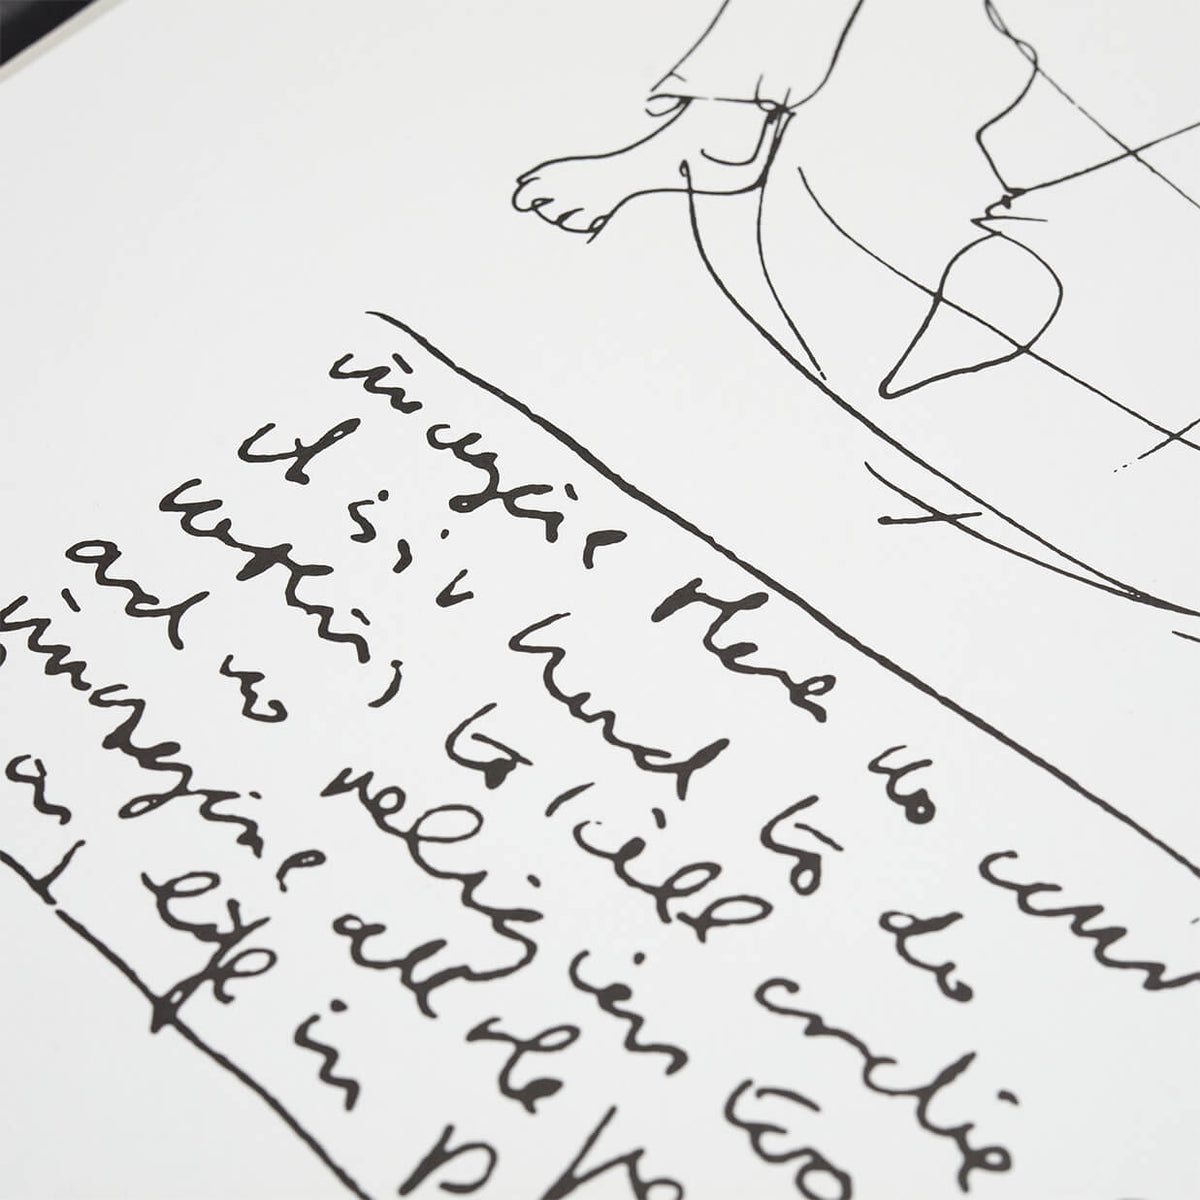 imagine there no coun
it isn't hard to do
nothin, to kill or die
and no religion too
imagine all the pe
life in p